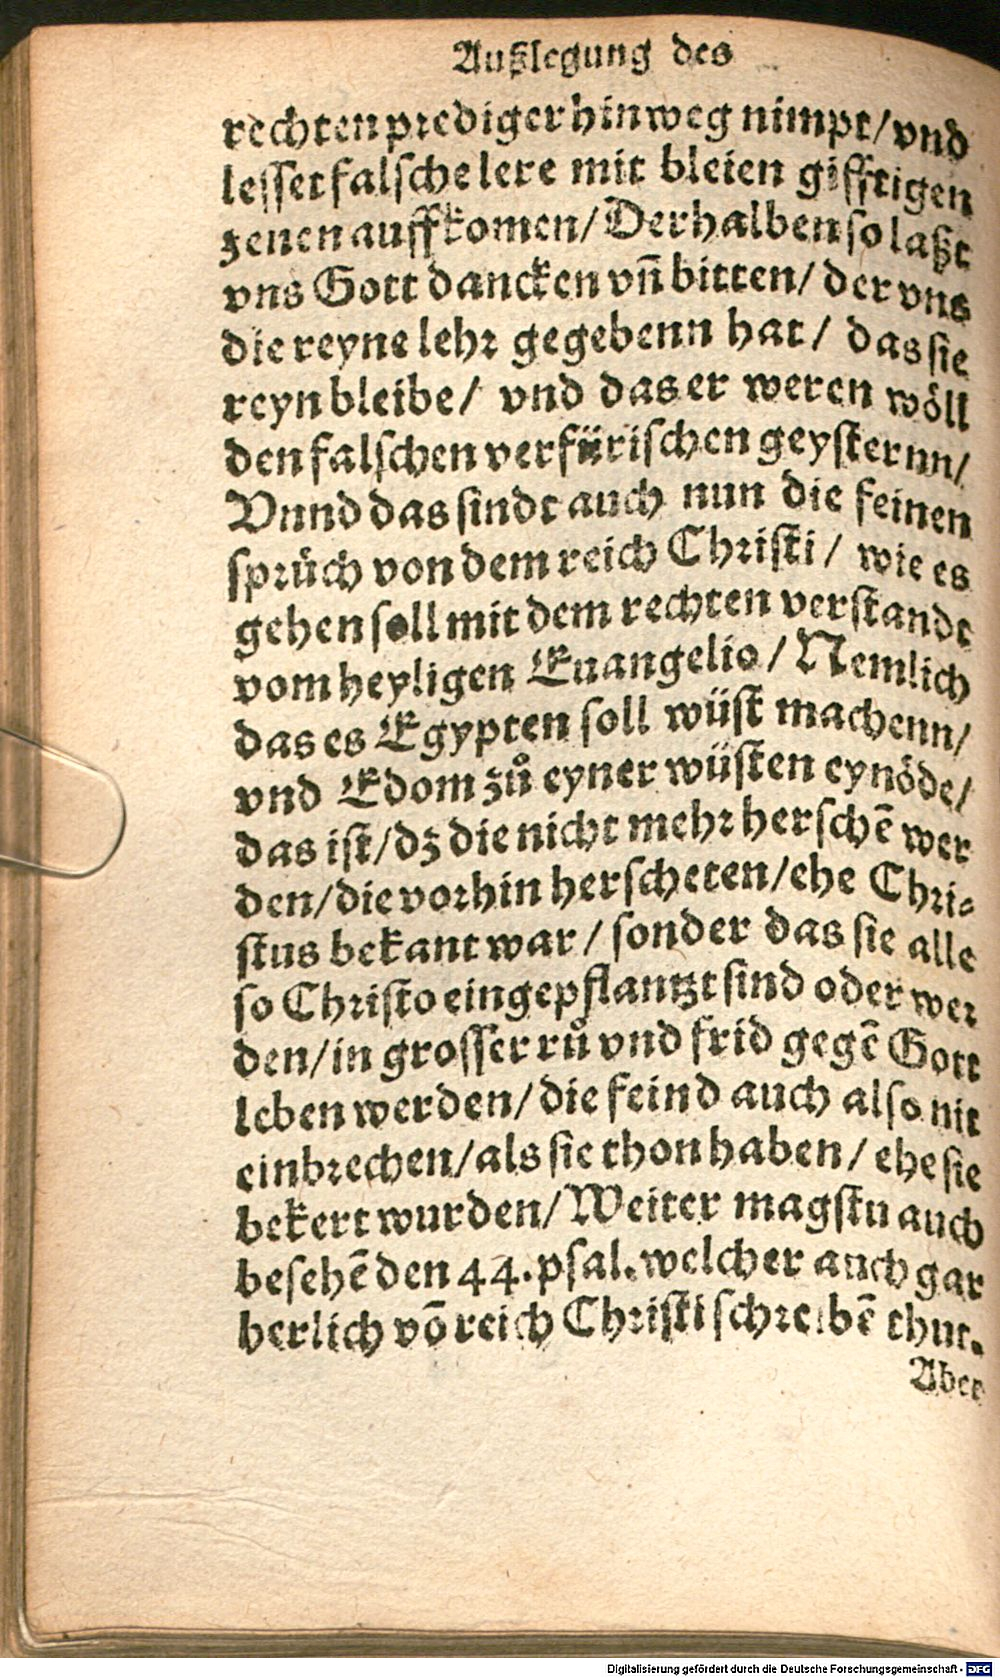 Außlegung des
rechten prediger hinweg nimpt/ vnd
lesset falsche lere mit bleien gifftigen
zenen auffkomen/ Derhalben so laßt
vns Gott dancken vn̄ bitten/ der vns
die reyne lehr gegebenn hat/ das sie
reyn bleibe/ vnd das er weren wöll
den falschen verfürischen geysternn/
Vnnd das sindt auch nun die feinen
sprüch von dem reich Christi/ wie es
gehen soll mit dem rechten verstandt
vom heyligen Euangelio/ Nemlich
das es Egypten soll wüst machenn/
vnd Edom zů eyner wüsten eynöde/
das ist/ dz die nicht mehr herschē wer
den/ die vorhin herscheten/ ehe Chri⸗
stus bekant war/ sonder das sie alle
so Christo eingepflantzt sind oder wer
den/ in grosser rů vnd frid gegē Gott
leben werden/ die feind auch also nit
einbrechen/ als sie thon haben/ ehe sie
bekert wurden/ Weiter magstu auch
besehē den 44. psal. welcher auch gar
herlich vō reich Christi schreibē thut.
Aber
Digitalisierung gefördert durch die Deutsche Forschungsgemeinschaft - DFG